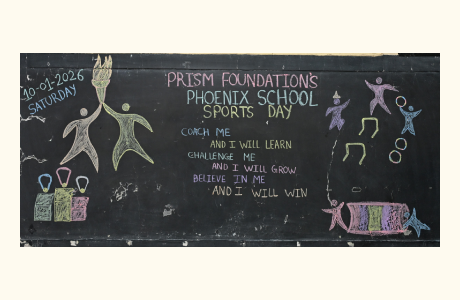 10-01-2026
SATURDAY
PRISM FOUNDATION'S
PHOENIX SCHOOL
SPORTS DAY
COACH ME
AND I WILL LEARN
CHALLENGE ME
AND I WILL GROW
BELIEVE IN ME
AND I WILL WIN